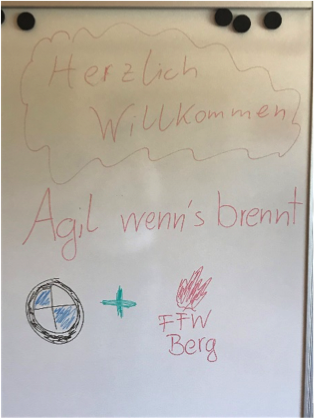 Herzlich
Willkommen
Agil wenn's brennt
+
FFW
Berg